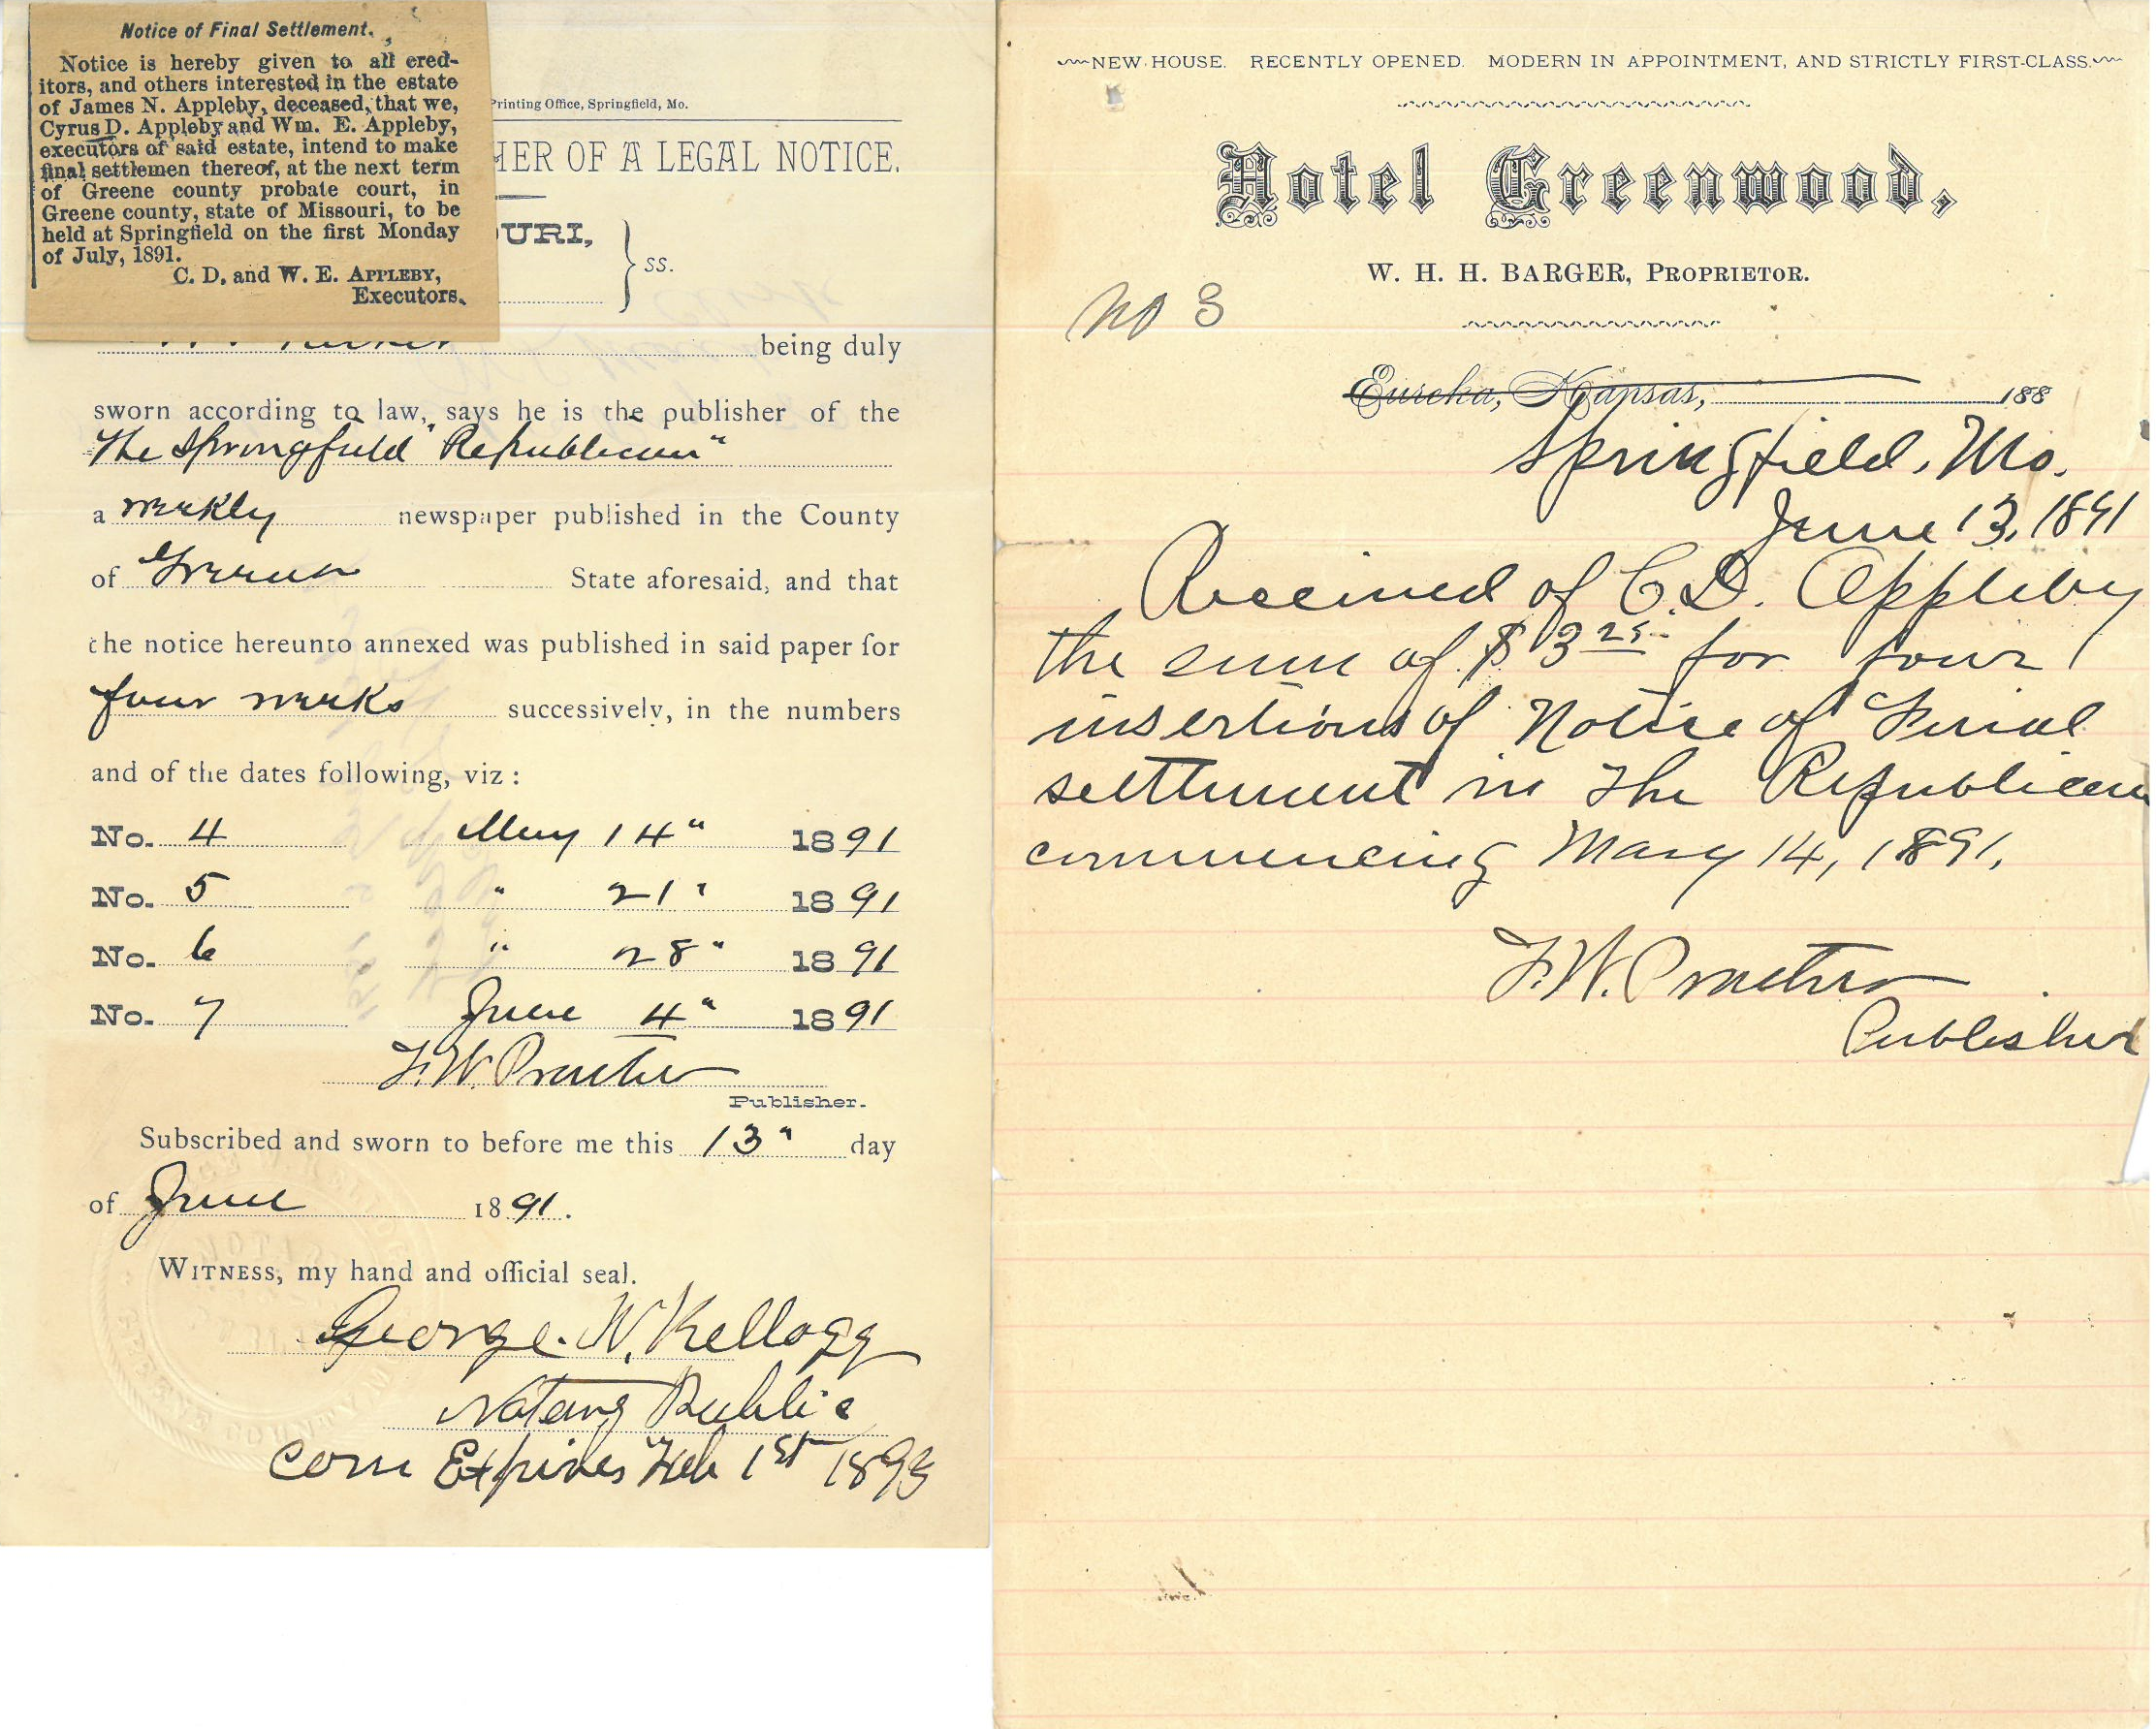 Notice of Final Settlement.
Notice is hereby given to all cred-
itors, and others interested in the estate
of James N. Appleby, deceased, that we,
Cyrus D. Appleby and Wm. E. Appleby,
executors of said estate, intend to make
final settlemen thereof, at the next term
of Greene county probate court, in
Greene county, state of Missouri, to be
held at Springfield on the first Monday
of July, 1891.
C. D. and W. E. APPLEBY,
Executors.
Printing Office, Springfield, Mo.
HER OF A LEGAL NOTICE.
OURI,
ss.
being duly
sworn according to law, says he is the publisher of the
The Springfield "Republican"
a weekly newspaper published in the County
of Greene State aforesaid, and that
the notice hereunto annexed was published in said paper for
four weeks successively, in the numbers
and of the dates following, viz:
No. 4 May 14" 1891
No. 5 " 21" 1891
No. 6 " 28" 1891
No. 7 June 4" 1891
F. W. Proctor
Publisher.
Subscribed and sworn to before me this 13" day
of June 1891.
WITNESS, my hand and official seal.
George. W. Kellogg
Notary Public
Com Expires Feb 1st 1893
NEW HOUSE. RECENTLY OPENED. MODERN IN APPOINTMENT, AND STRICTLY FIRST-CLASS.
Hotel Greenwood,
W. H. H. BARGER, PROPRIETOR.
No 3
Eureka, Kansas, 188
Springfield, Mo.
June 13, 1891
Received of C. D. Appleby
the sum of $3 25 for four
insertions of Notice of Final
settlement in The Republican
commencing May 14, 1891.
F. W. Proctor
Publisher